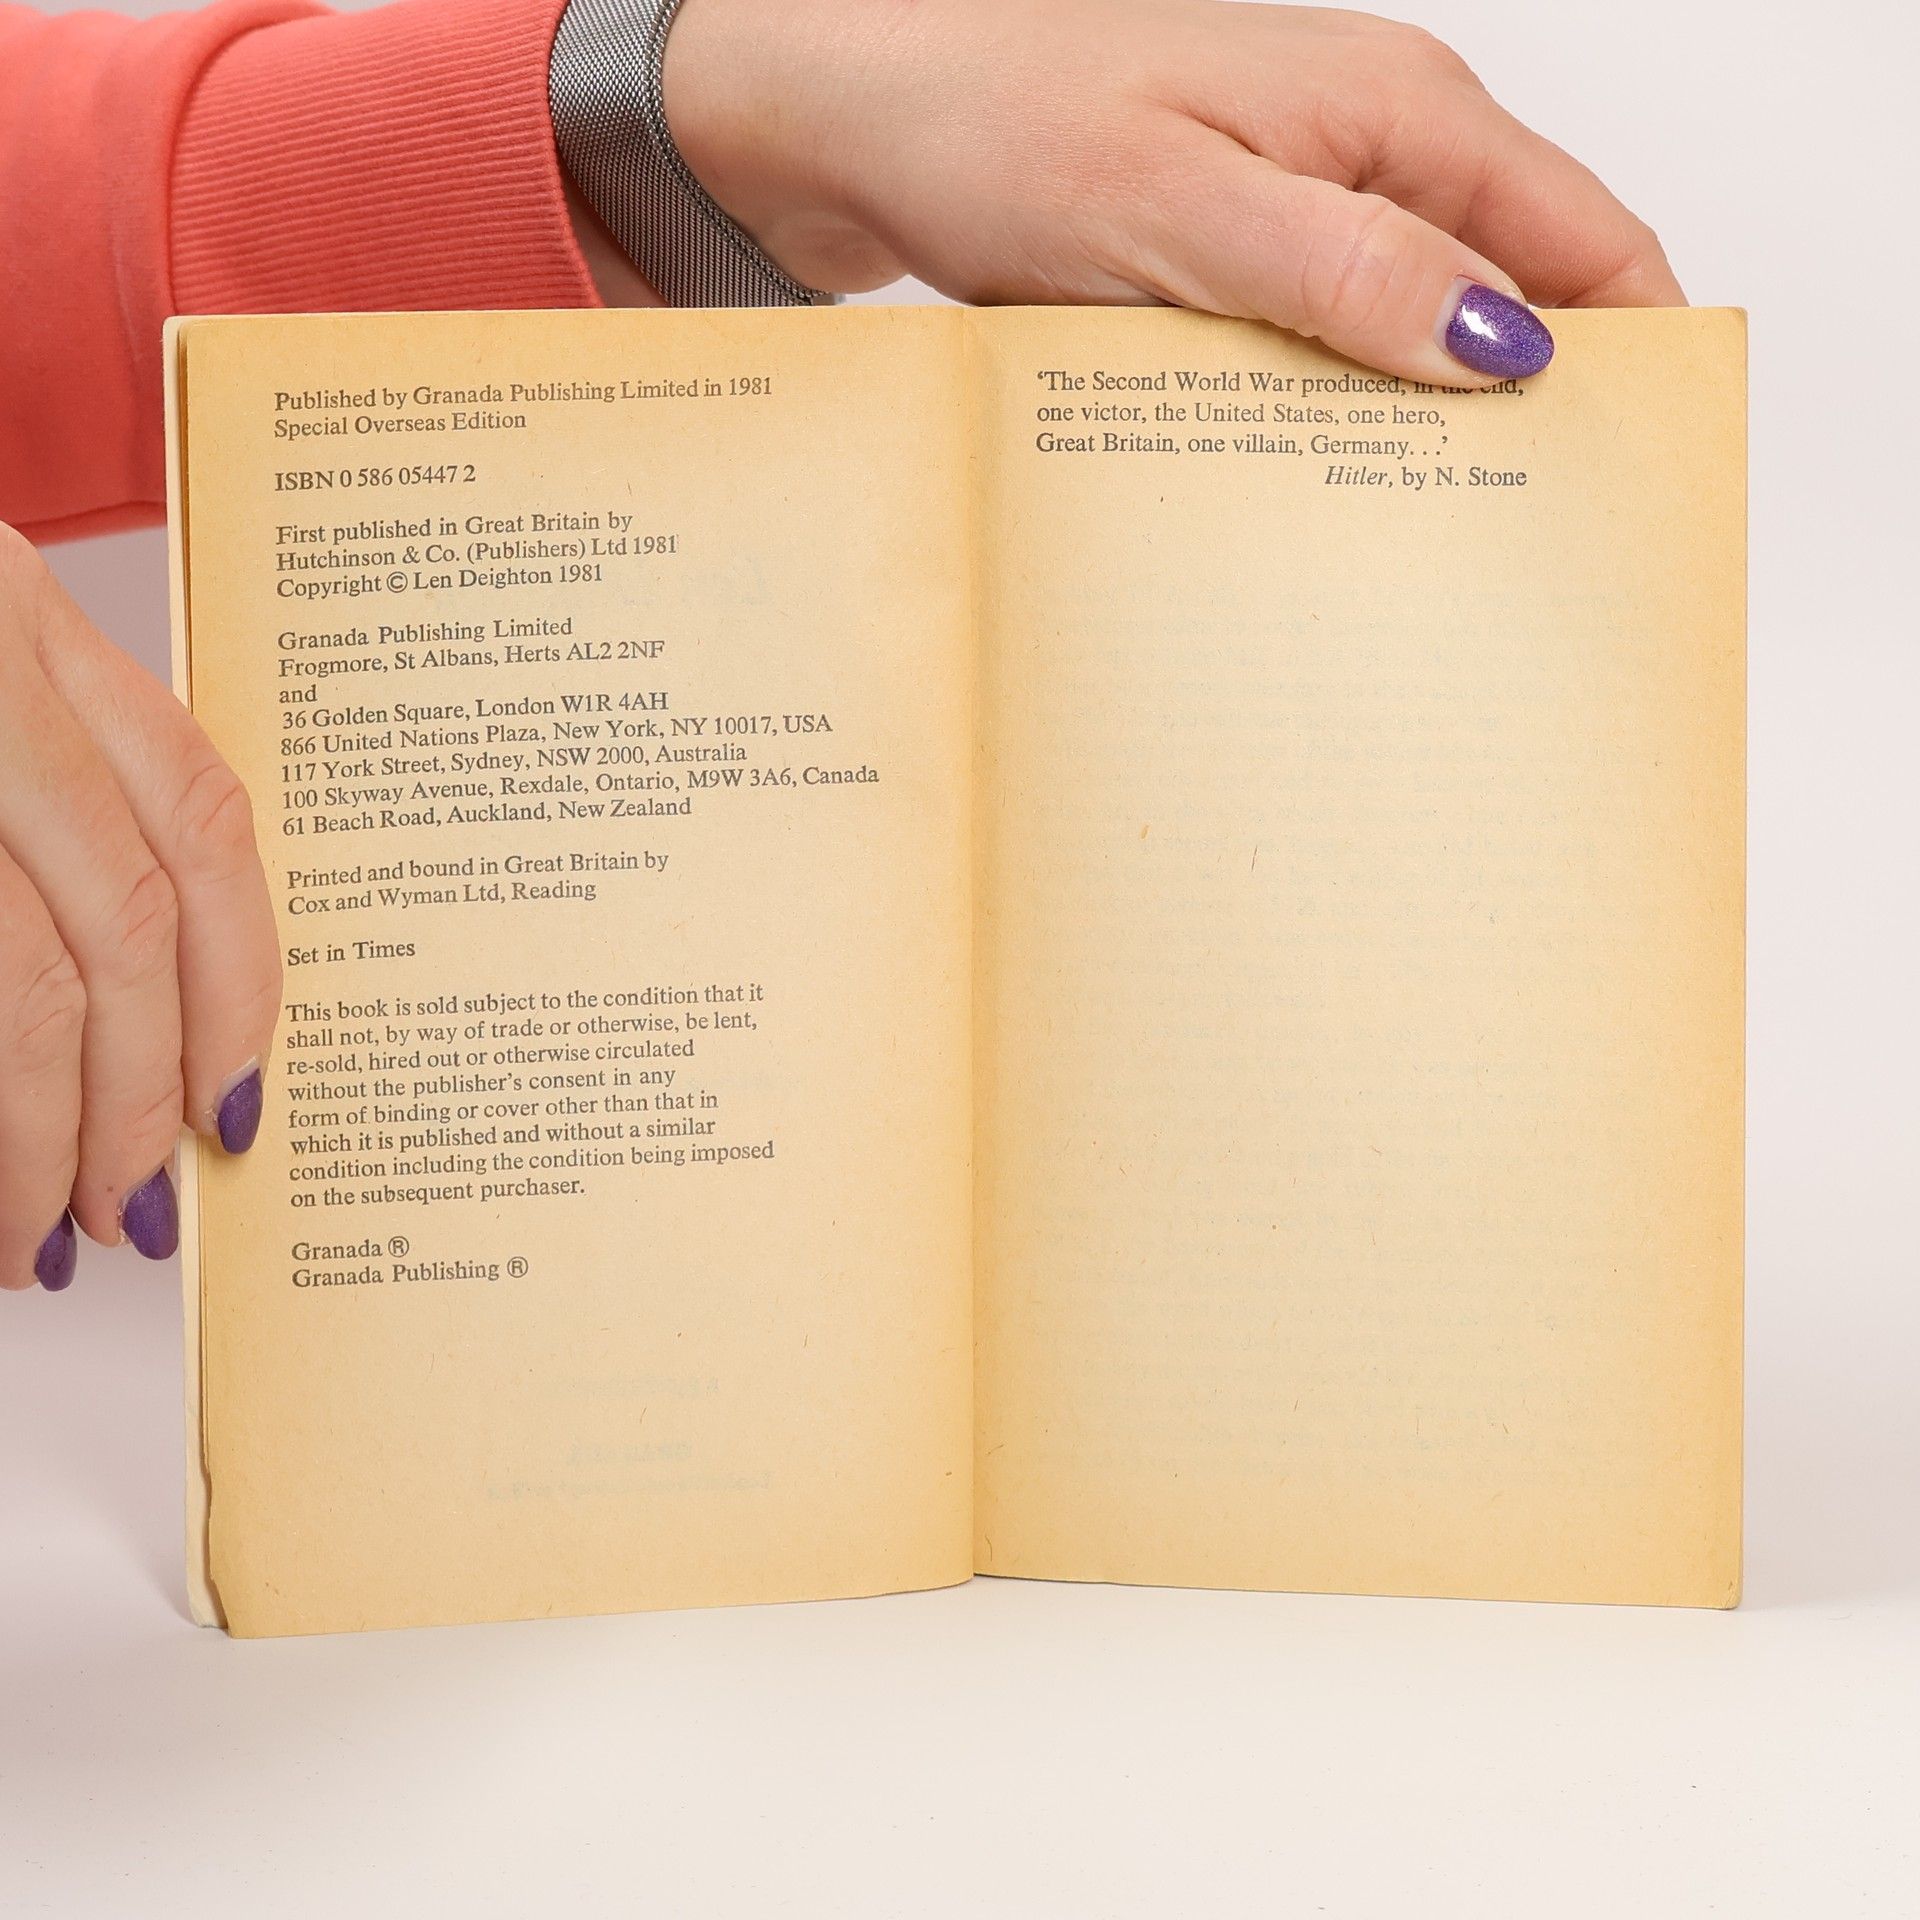 Published by Granada Publishing Limited in 1981
Special Overseas Edition
ISBN 0 586 05447 2
First published in Great Britain by
Hutchinson & Co. (Publishers) Ltd 1981
Copyright © Len Deighton 1981
Granada Publishing Limited
Frogmore, St Albans, Herts AL2 2NF
and
36 Golden Square, London W1R 4AH
866 United Nations Plaza, New York, NY 10017, USA
117 York Street, Sydney, NSW 2000, Australia
100 Skyway Avenue, Rexdale, Ontario, M9W 3A6, Canada
61 Beach Road, Auckland, New Zealand
Printed and bound in Great Britain by
Cox and Wyman Ltd, Reading
Set in Times
This book is sold subject to the condition that it
shall not, by way of trade or otherwise, be lent,
re-sold, hired out or otherwise circulated
without the publisher's consent in any
form of binding or cover other than that in
which it is published and without a similar
condition including the condition being imposed
on the subsequent purchaser.
Granada ®
Granada Publishing ®
‘The Second World War produced, in the end,
one victor, the United States, one hero,
Great Britain, one villain, Germany. . .’
Hitler, by N. Stone